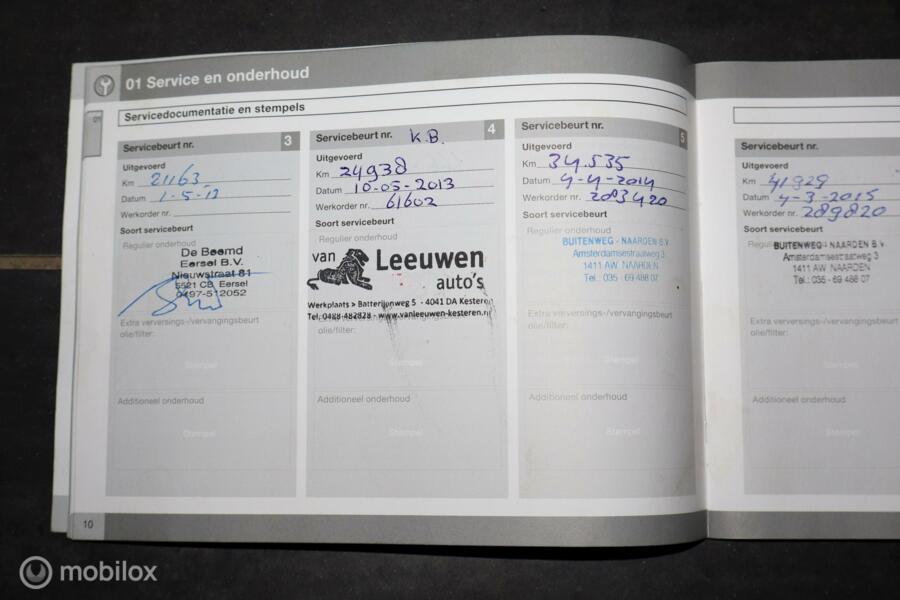 01 Service en onderhoud
01
Servicedocumentatie en stempels
Servicebeurt nr. 3
Uitgevoerd
Km 21163
Datum 1-5-12
Werkorder nr.
Soort servicebeurt
Regulier onderhoud
De Beemd
Eersel B.V.
Nieuwstraat 81
5521 CB Eersel
0497-512052
Extra verversings-/vervangingsbeurt
olie/filter:
Stempel
Additioneel onderhoud
Stempel
Servicebeurt nr. K.B. 4
Uitgevoerd
Km 24938
Datum 10-05-2013
Werkorder nr. 61602
Soort servicebeurt
Regulier onderhoud
van Leeuwen
auto's
Werkplaats > Batterijenweg 5 - 4041 DA Kesteren
Tel. 0488-482828 - www.vanleeuwen-kesteren.nl
olie/filter:
Stempel
Additioneel onderhoud
Stempel
Servicebeurt nr. 5
Uitgevoerd
Km 34.535
Datum 4-4-2014
Werkorder nr. 2083420
Soort servicebeurt
Regulier onderhoud
BUITENWEG - NAARDEN B.V.
Amsterdamsestraatweg 3
1411 AW NAARDEN
Tel.: 035 - 69 488 07
Extra verversings-/vervangingsbeurt
olie/filter:
Stempel
Additioneel onderhoud
Stempel
Servicebeurt nr.
Uitgevoerd
Km 41929
Datum 4-3-2015
Werkorder nr. 289820
Soort servicebeurt
BUITENWEG - NAARDEN B.V.
Amsterdamsestraatweg 3
1411 AW NAARDEN
Tel.: 035 - 69 488 07
Extra verversings-/vervangingsbeurt
olie/filter:
Additioneel onderhoud
10
mobilox